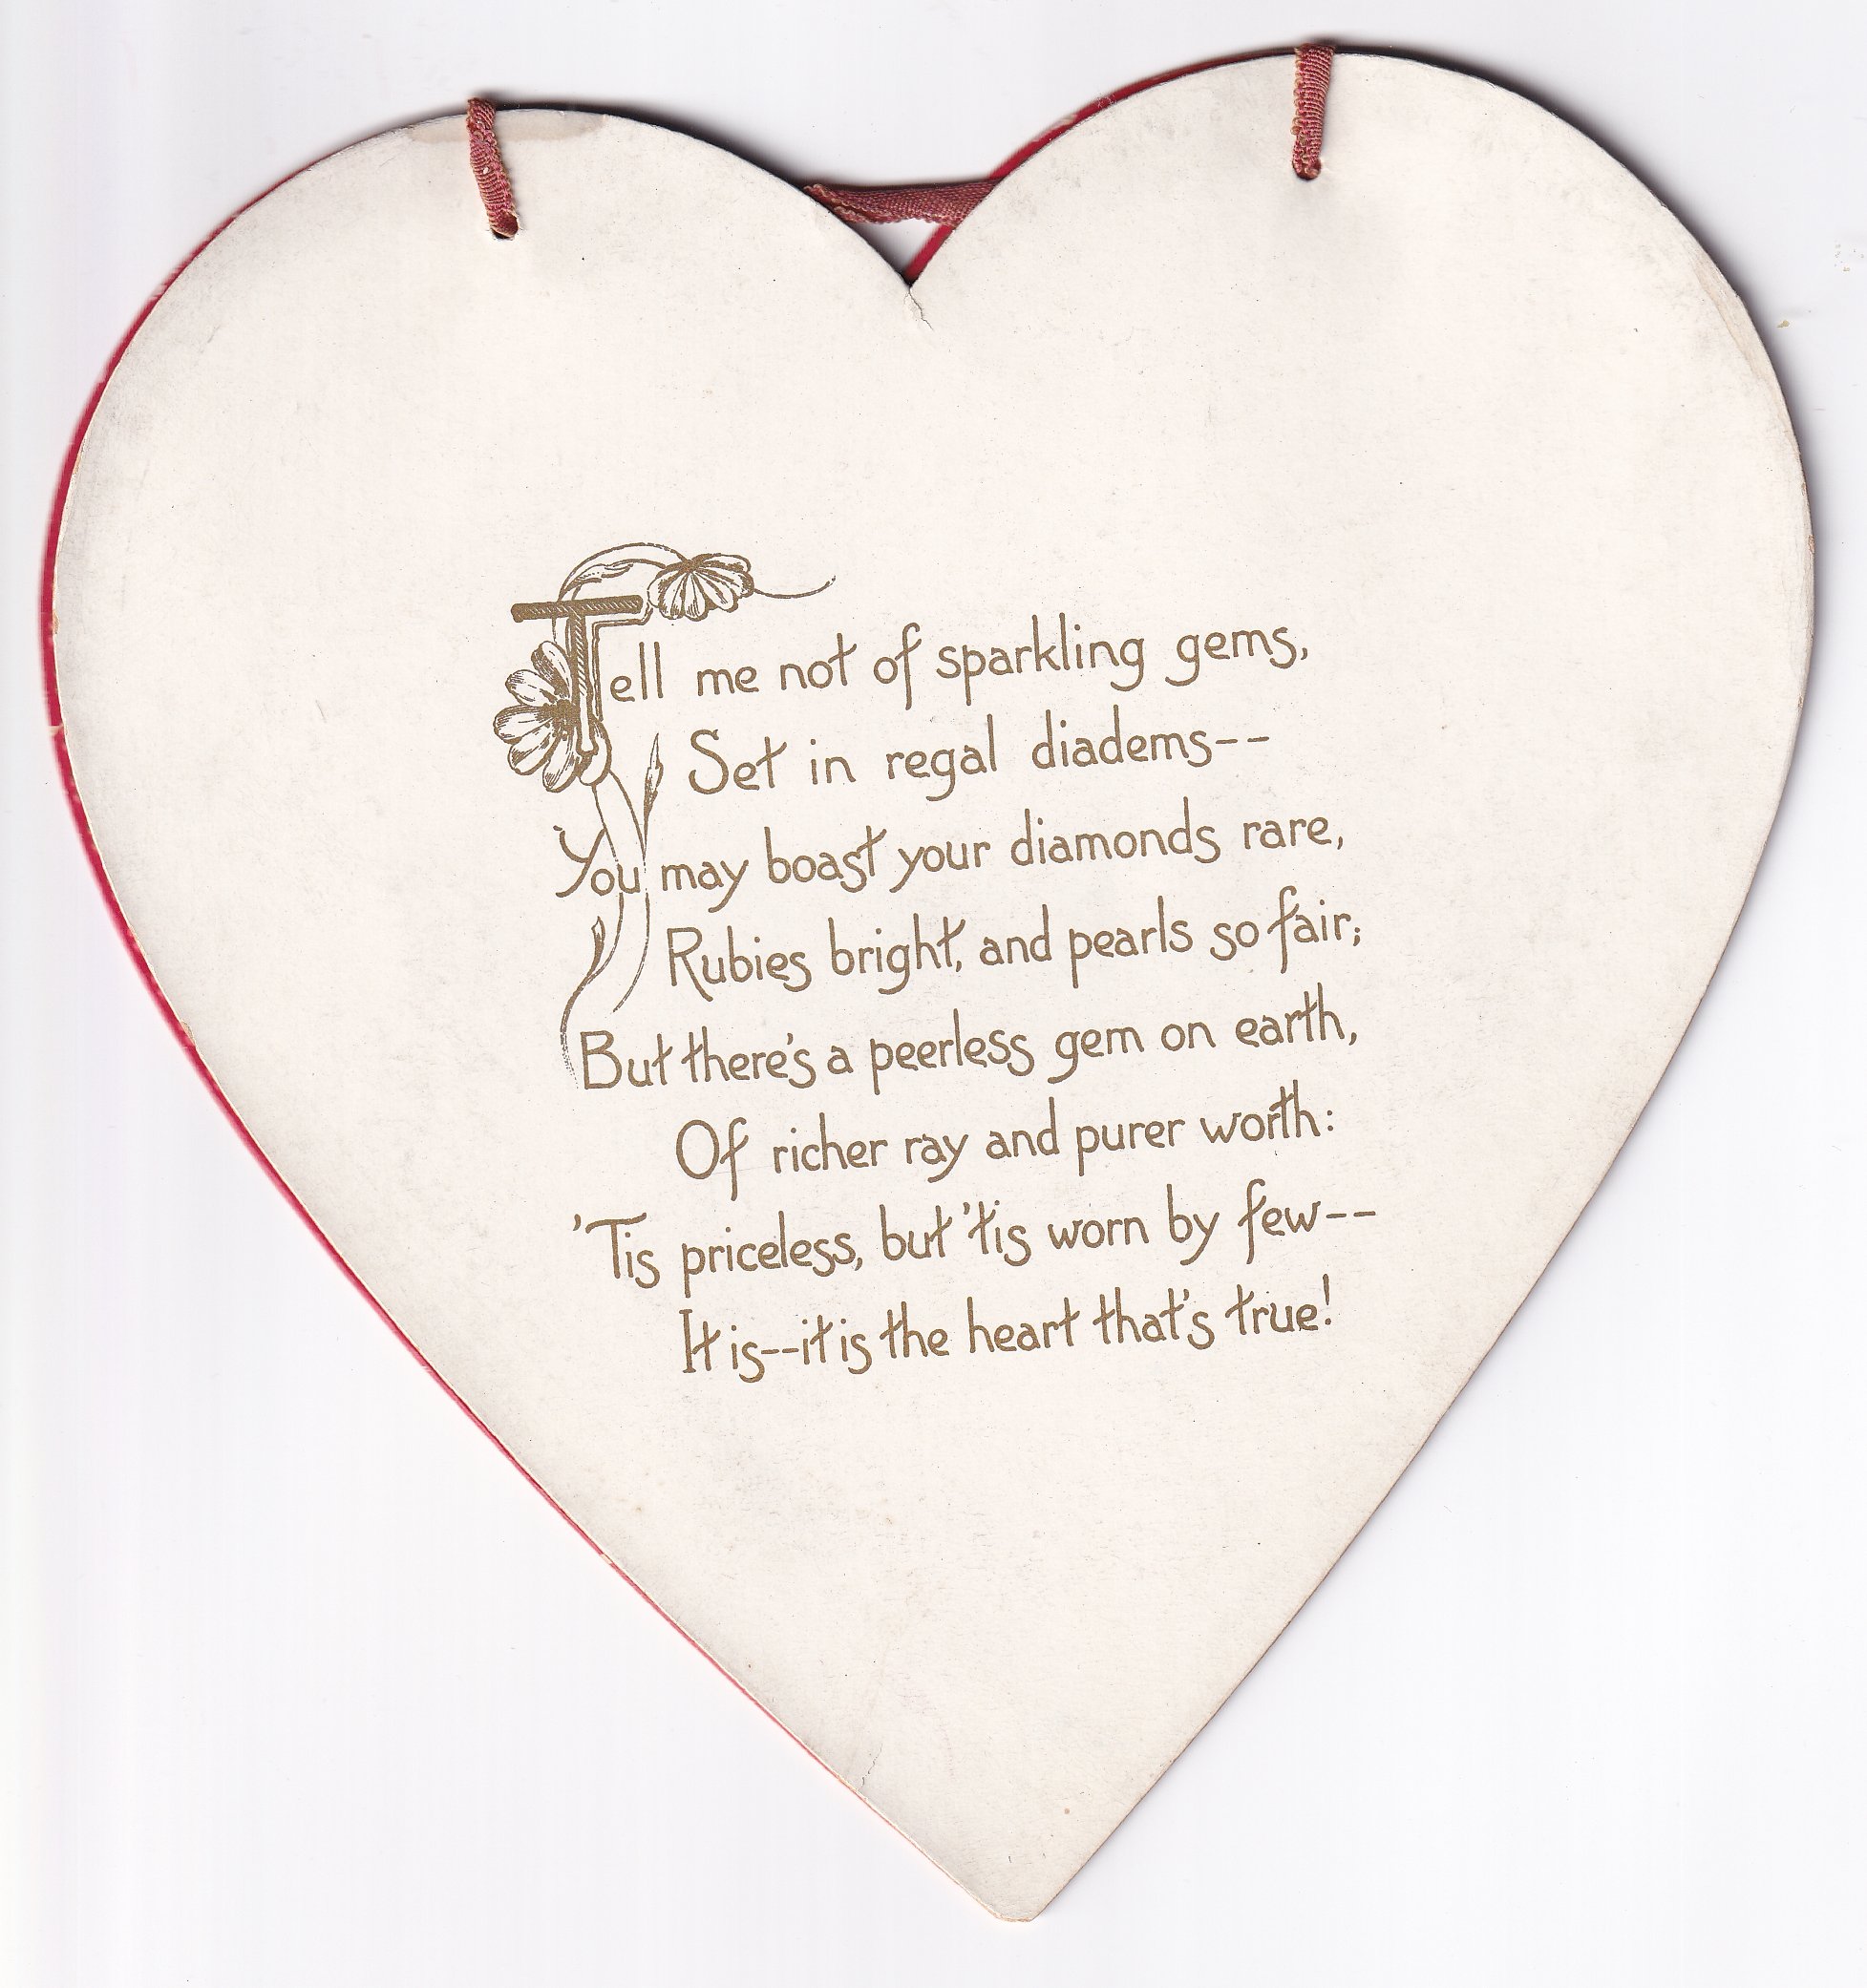 Tell me not of sparkling gems,
Set in regal diadems--
You may boast your diamonds rare,
Rubies bright, and pearls so fair;
But there's a peerless gem on earth,
Of richer ray and purer worth:
'Tis priceless, but 'tis worn by few--
It is--it is the heart that's true!